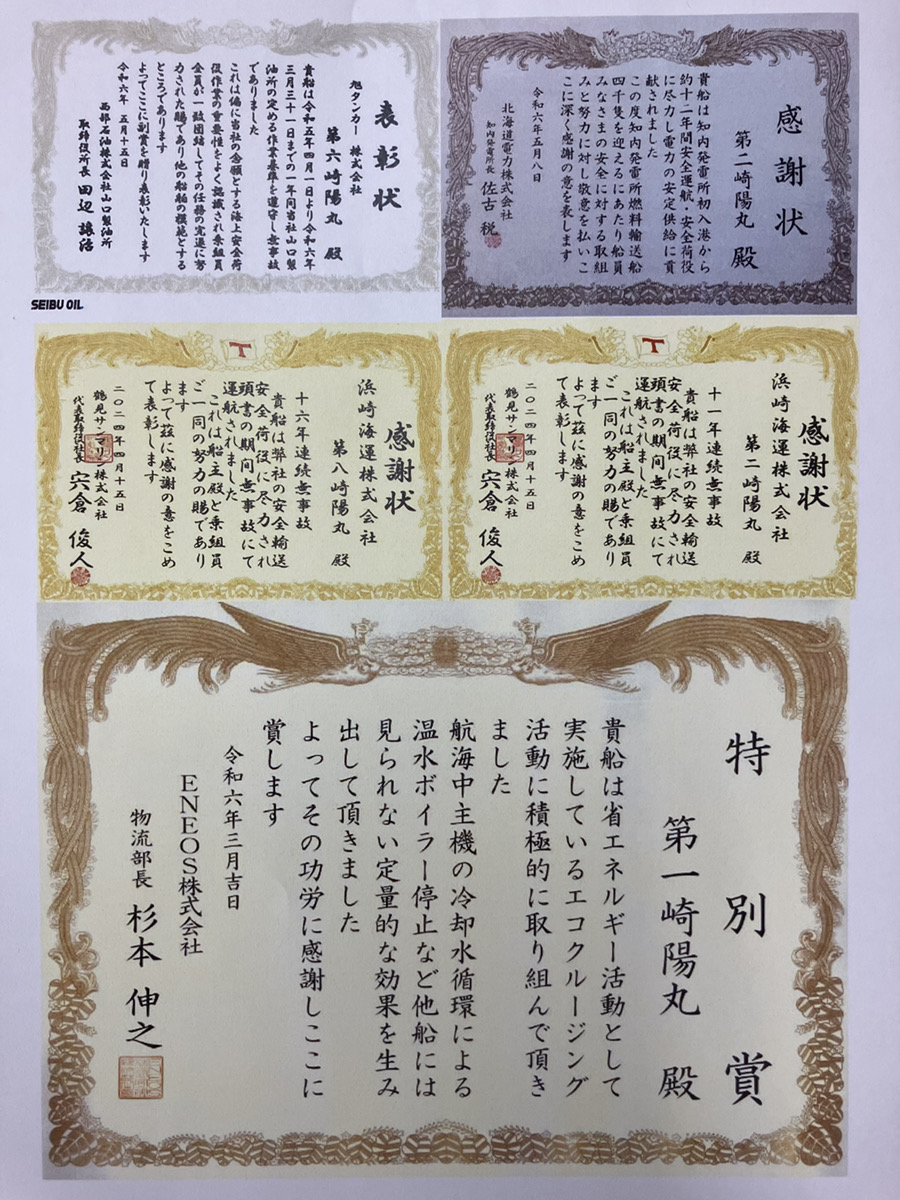 表彰状
旭タンカー 株式会社
第六崎陽丸 殿
貴船は令和五年四月一日より令和六年
三月三十一日までの一年間当社山口製
油所の定める作業基準を遵守し無事故
でありました
これは偏に当社の念願とする海上安全荷
役作業の重要性をよく認識され乗組員
全員が一致団結してその任務の完遂に努
力された賜であり他の船舶の模範とする
ところであります
よってここに副賞を贈り表彰いたします
令和六年 五月十五日
西部石油株式会社山口製油所
取締役所長 田辺 譲治
SEIBU OIL
感謝状
第二崎陽丸 殿
貴船は知内発電所初入港から
約十二年間安全運航・安全荷役
に尽力し電力の安定供給に貢
献されました
この度知内発電所燃料輸送船
四千隻を迎えるにあたり船員
みなさまの安全に対する取組
みと努力に対し敬意を払いこ
こに深く感謝の意を表します
令和六年五月八日
北海道電力株式会社
知内発電所長 佐古 税
T
感謝状
浜崎海運株式会社
第八崎陽丸 殿
十六年連続無事故
貴船は弊社の安全輸送
安全荷役に尽力され
頭書の期間無事故にて
運航されました
これは船主殿と乗組員
ご一同の努力の賜であり
ます
よって茲に感謝の意をこめ
て表彰します
二〇二四年四月十五日
鶴見サンマリン株式会社
代表取締役社長 宍倉 俊人
T
感謝状
浜崎海運株式会社
第二崎陽丸 殿
十一年連続無事故
貴船は弊社の安全輸送
安全荷役に尽力され
頭書の期間無事故にて
運航されました
これは船主殿と乗組員
ご一同の努力の賜であり
ます
よって茲に感謝の意をこめ
て表彰します
二〇二四年四月十五日
鶴見サンマリン株式会社
代表取締役社長 宍倉 俊人
特別賞
第一崎陽丸 殿
貴船は省エネルギー活動として
実施しているエコクルージング
活動に積極的に取り組んで頂き
ました
航海中主機の冷却水循環による
温水ボイラー停止など他船には
見られない定量的な効果を生み
出して頂きました
よってその功労に感謝しここに
賞します
令和六年三月吉日
ENEOS株式会社
物流部長 杉本 伸之